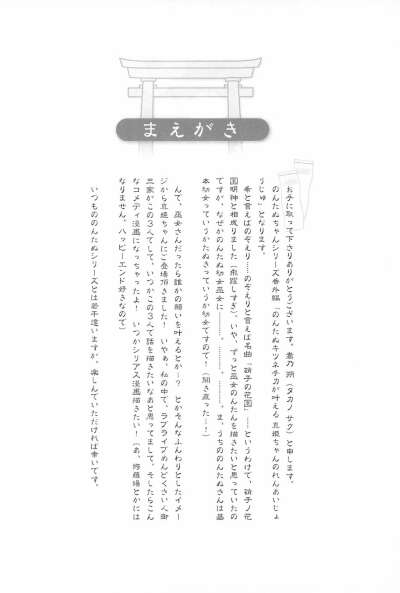 まえがき
お手に取って下さりありがとうございます。鷹乃 朔（タカノ サク）と申します。
のんたぬちゃんシリーズ番外編「のんたぬキツネ予刀が叶える 真姫ちゃんのれんあいじょ
うじゅ」となります。
希と言えばのぞえり……のぞえりと言えば名曲「硝子の花園」……というわけで、硝子ノ花
園明神と相成りました（飛躍しすぎ）。いや、ずっと巫女のんたんを描きたいと思っていたの
ですが、なぜかのんたぬ幼女巫女に………。………。………。ま、うちののんたぬさんは基
本幼女っていうかたぬきっていうか幼女ですので！（開き直ったー！）
んで、巫女さんだったら誰かの願いを叶えるとかー？　とかそんなふんわりとしたイメー
ジから真姫ちゃんにご登場頂きました！　いやぁ、私の中で、ラブライブめんどくさい人御
三家がこの３人でして、いつかこの３人で話を描きたいなあと思ってまして。そしたらこん
なコメディ漫画になっちゃったよ！　いつかシリアス漫画描きたい！（あ、修羅場とかには
なりません、ハッピーエンド好きなので）
いつもののんたぬシリーズとは若干違いますが、楽しんでいただければ幸いです。